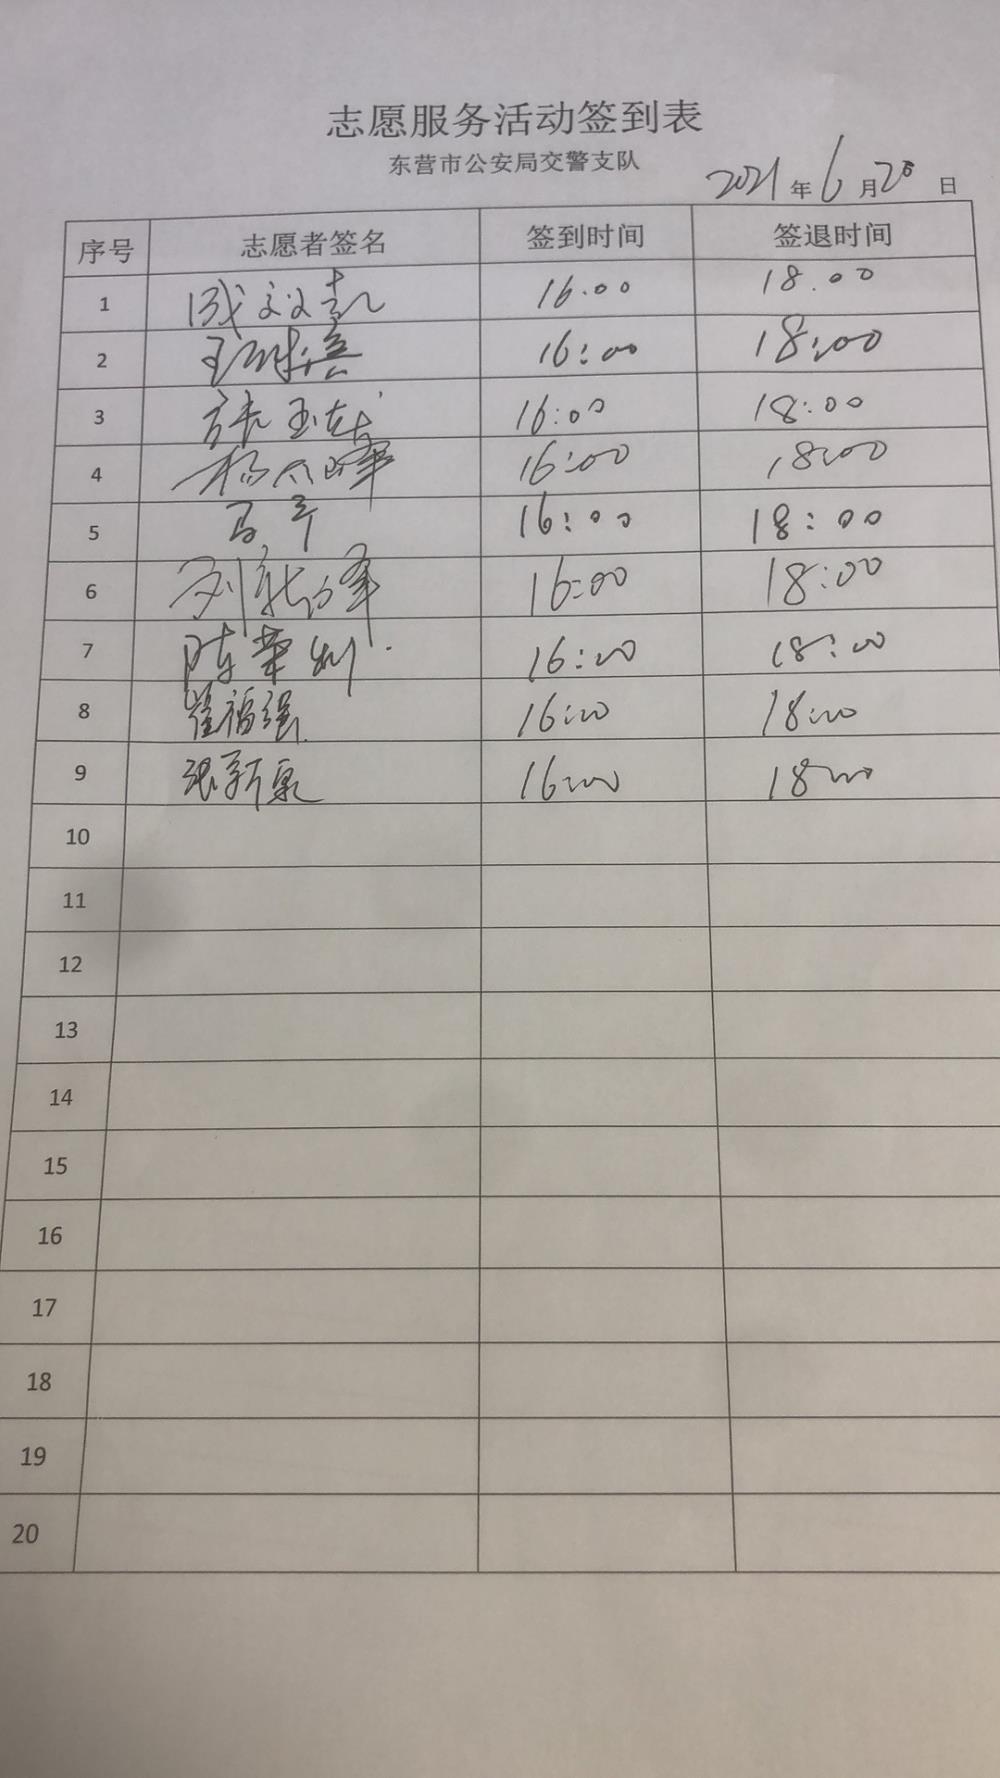 志愿服务活动签到表
东营市公安局交警支队
2021年6月20日
序号 志愿者签名 签到时间 签退时间
1 16:00 18:00
2 16:00 18:00
3 16:00 18:00
4 16:00 18:00
5 16:00 18:00
6 16:00 18:00
7 陈荣 16:00 18:00
8 崔福强 16:00 18:00
9 张新泉 16:00 18:00
10
11
12
13
14
15
16
17
18
19
20